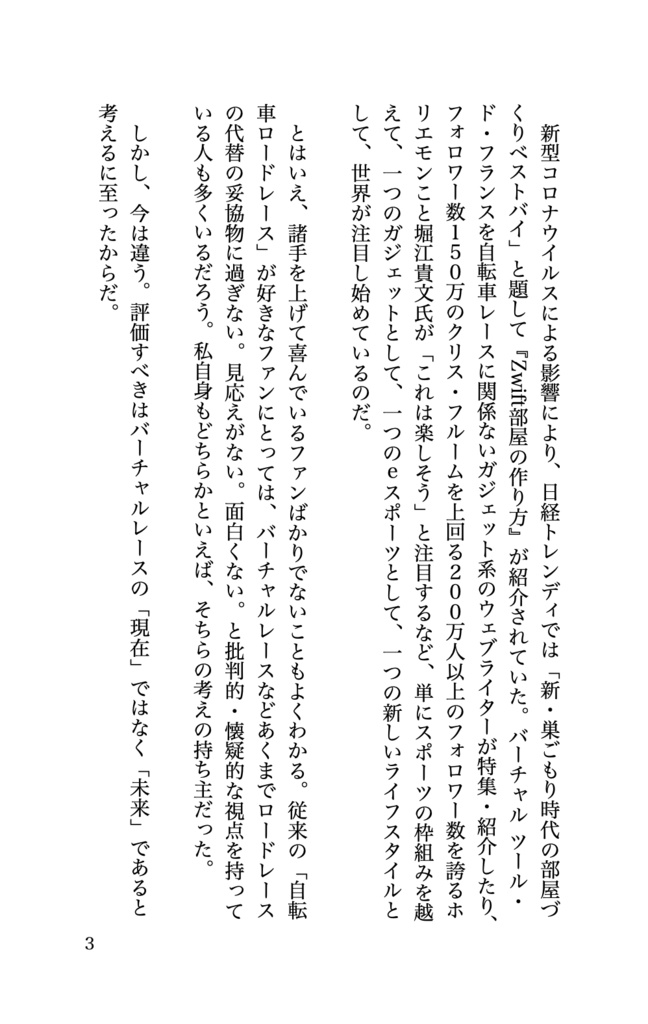 新型コロナウイルスによる影響により、日経トレンディでは「新・巣ごもり時代の部屋づ
くりベストバイ」と題して『Zwift部屋の作り方』が紹介されていた。バーチャル ツール・
ド・フランスを自転車レースに関係ないガジェット系のウェブライターが特集・紹介したり、
フォロワー数150万のクリス・フルームを上回る200万人以上のフォロワー数を誇るホ
リエモンこと堀江貴文氏が「これは楽しそう」と注目するなど、単にスポーツの枠組みを越
えて、一つのガジェットとして、一つのeスポーツとして、一つの新しいライフスタイルと
して、世界が注目し始めているのだ。
とはいえ、諸手を上げて喜んでいるファンばかりでないこともよくわかる。従来の「自転
車ロードレース」が好きなファンにとっては、バーチャルレースなどあくまでロードレース
の代替の妥協物に過ぎない。見応えがない。面白くない。と批判的・懐疑的な視点を持って
いる人も多くいるだろう。私自身もどちらかといえば、そちらの考えの持ち主だった。
しかし、今は違う。評価すべきはバーチャルレースの「現在」ではなく「未来」であると
考えるに至ったからだ。
3